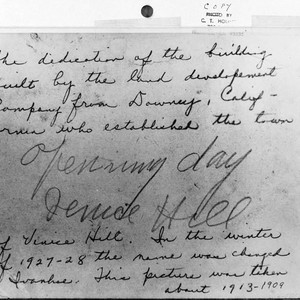 COPY
C. E. HOL
The dedication of the building
built by the land development
Company from Downey, Calif-
ornia who established the town
Openning day
Venice Hill
of Venice Hill. In the winter
of 1927-28 the name was changed
Ivanhoe. This picture was taken
about 1913-1909